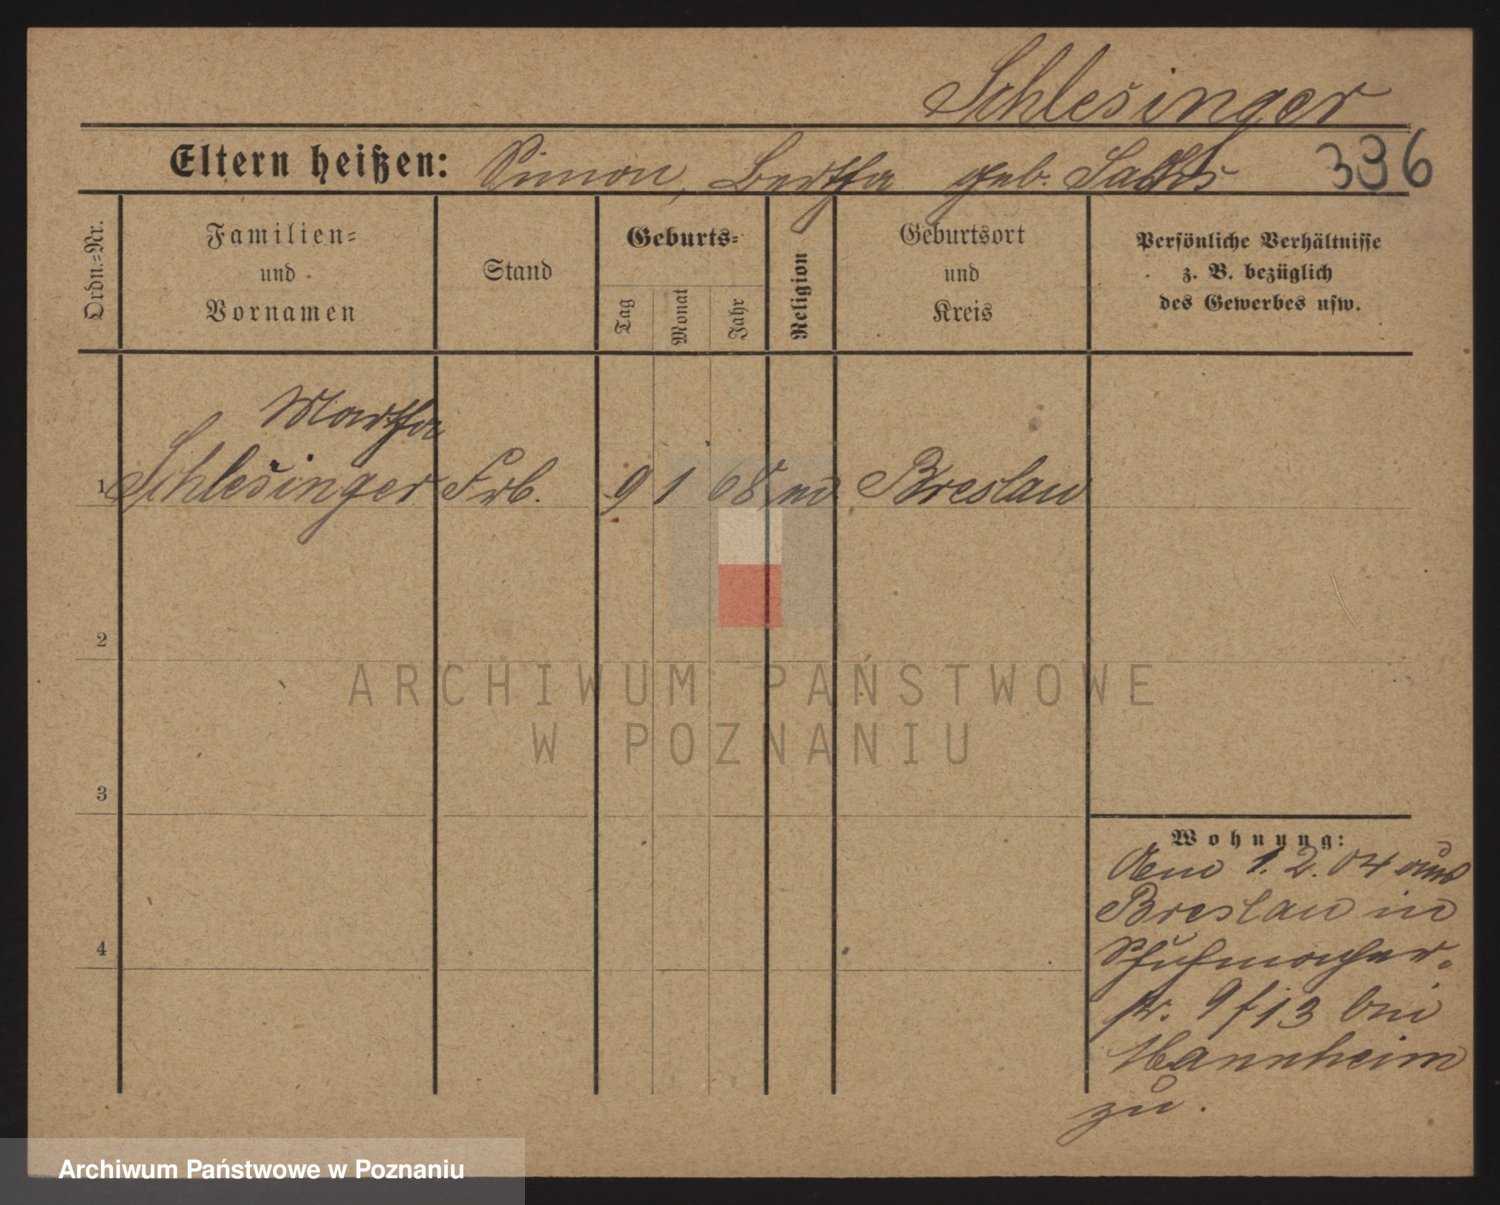 Schlesinger
Eltern heißen: Simon, Bertha geb. Sachs 336
Ordn.=Nr.
Familien=
und
Vornamen
Stand
Geburts=
Tag
Monat
Jahr
Religion
Geburtsort
und
Kreis
Persönliche Verhältnisse
z. B. bezüglich
des Gewerbes usw.
Martha
1 Schlesinger Frb. 9 1 68 Breslau
2
3
4
Wohnung:
Am 1. 2. 04 aus
Breslau in
Schuhmacher-
str. 9/13 bei
Mannheim
zu.
ARCHIWUM PAŃSTWOWE
W POZNANIU
Archiwum Państwowe w Poznaniu